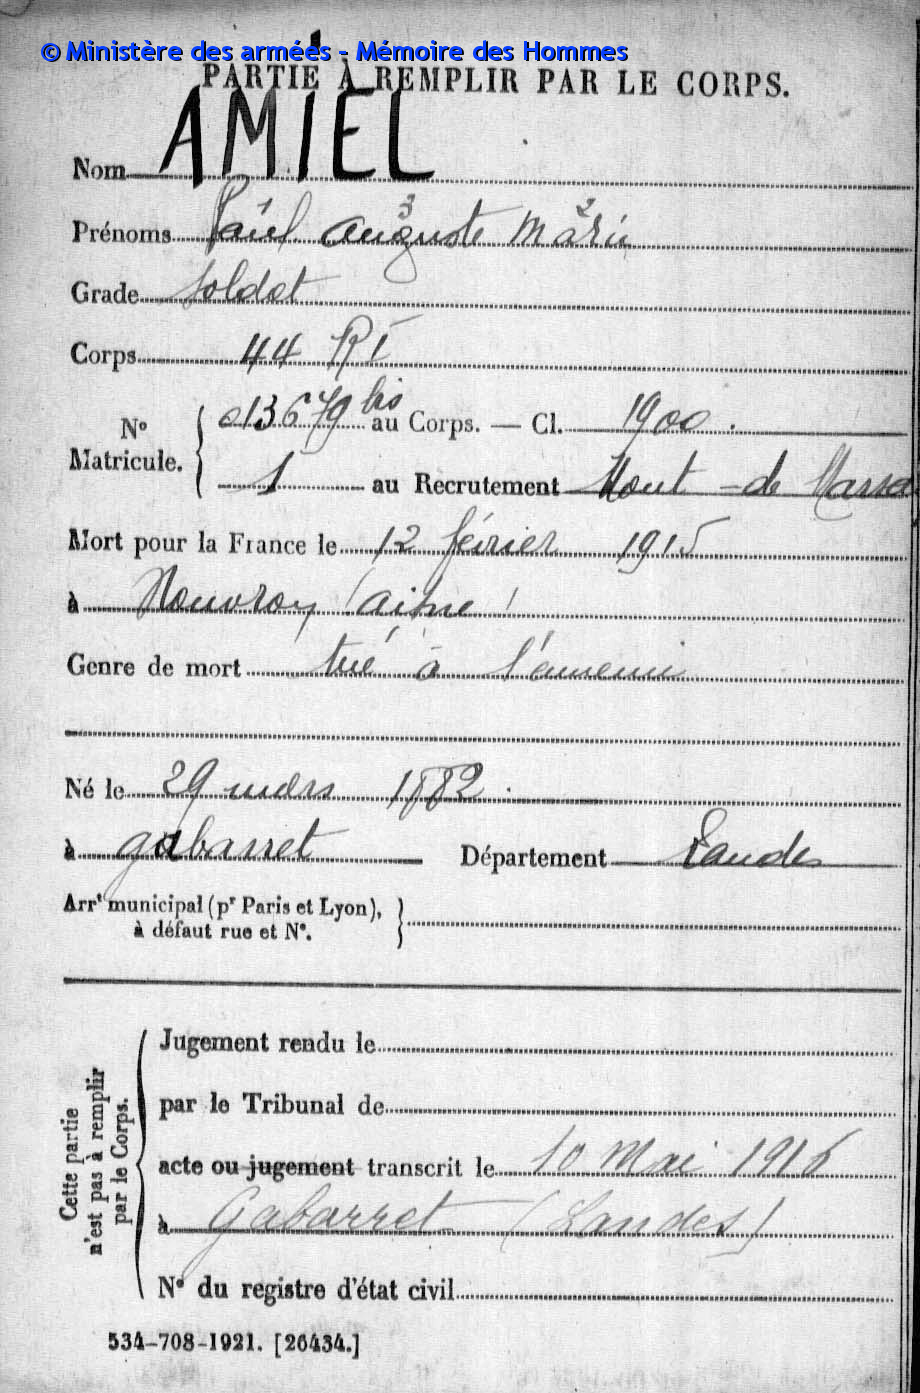 © Ministère des armées - Mémoire des Hommes
PARTIE À REMPLIR PAR LE CORPS.
Nom AMIEL
Prénoms Paul Auguste Marie
3 2
Grade Soldat
Corps 44 RI
No Matricule. { 013679 bis au Corps. — Cl. 1900.
1 au Recrutement Mont-de Marsan
Mort pour la France le 12 février 1915
à Nouvron (aisne)
Genre de mort tué à l'ennemi
Né le 29 mars 1882.
à gabarret Département Landes
Arrt municipal (pr Paris et Lyon), }
à défaut rue et No.
Cette partie
n'est pas à remplir
par le Corps.
Jugement rendu le
par le Tribunal de
acte ou jugement transcrit le 10 Mai 1916
à Gabarret (Landes)
No du registre d'état civil
534-708-1921. [26434.]